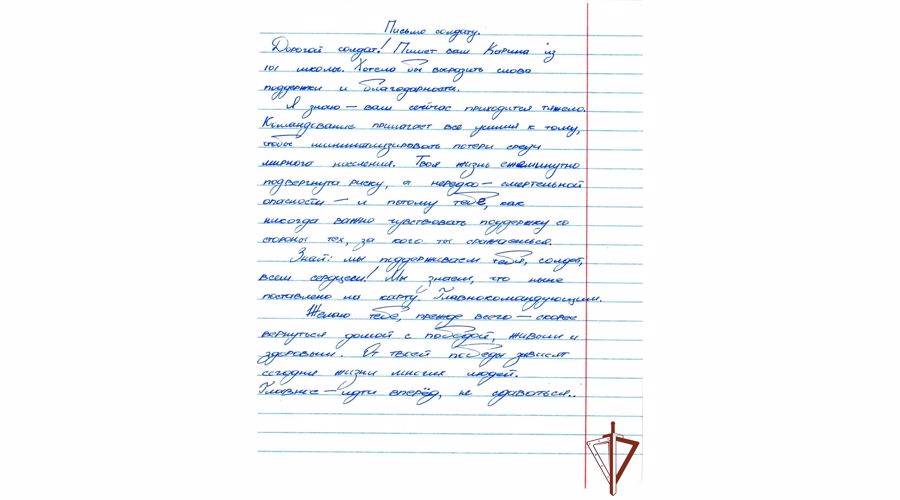 Письмо солдату.
Дорогой солдат! Пишет вам Карина из
101 школы. Хотела бы выразить слова
поддержки и благодарности.
Я знаю – вам сейчас приходится тяжело.
Командование прилагает все усилия к тому,
чтобы минимизировать потери среди
мирного населения. Твоя жизнь ежеминутно
подвергнута риску, а нередко – смертельной
опасности – и потому тебе, как
никогда важно чувствовать поддержку со
стороны тех, за кого ты сражаешься.
Знай: мы поддерживаем тебя, солдат,
всем сердцем! Мы знаем, что ныне
поставлено на карту Главнокомандующим.
Желаю тебе, прежде всего – скорее
вернуться домой с победой, живым и
здоровым. От твоей победы зависят
сегодня жизни многих людей.
Главное – идти вперёд, не сдаваться..